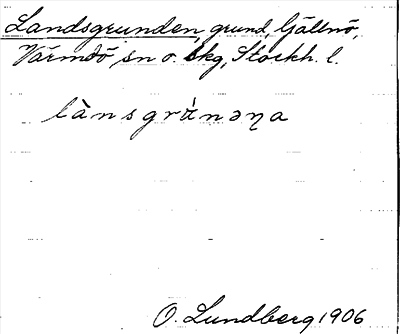 Landsgrunden, grund, Gällnö,
Värmdö sn o. skg, Stockh. l.
là̀nsgrù̀nəŋa
O. Lundberg 1906